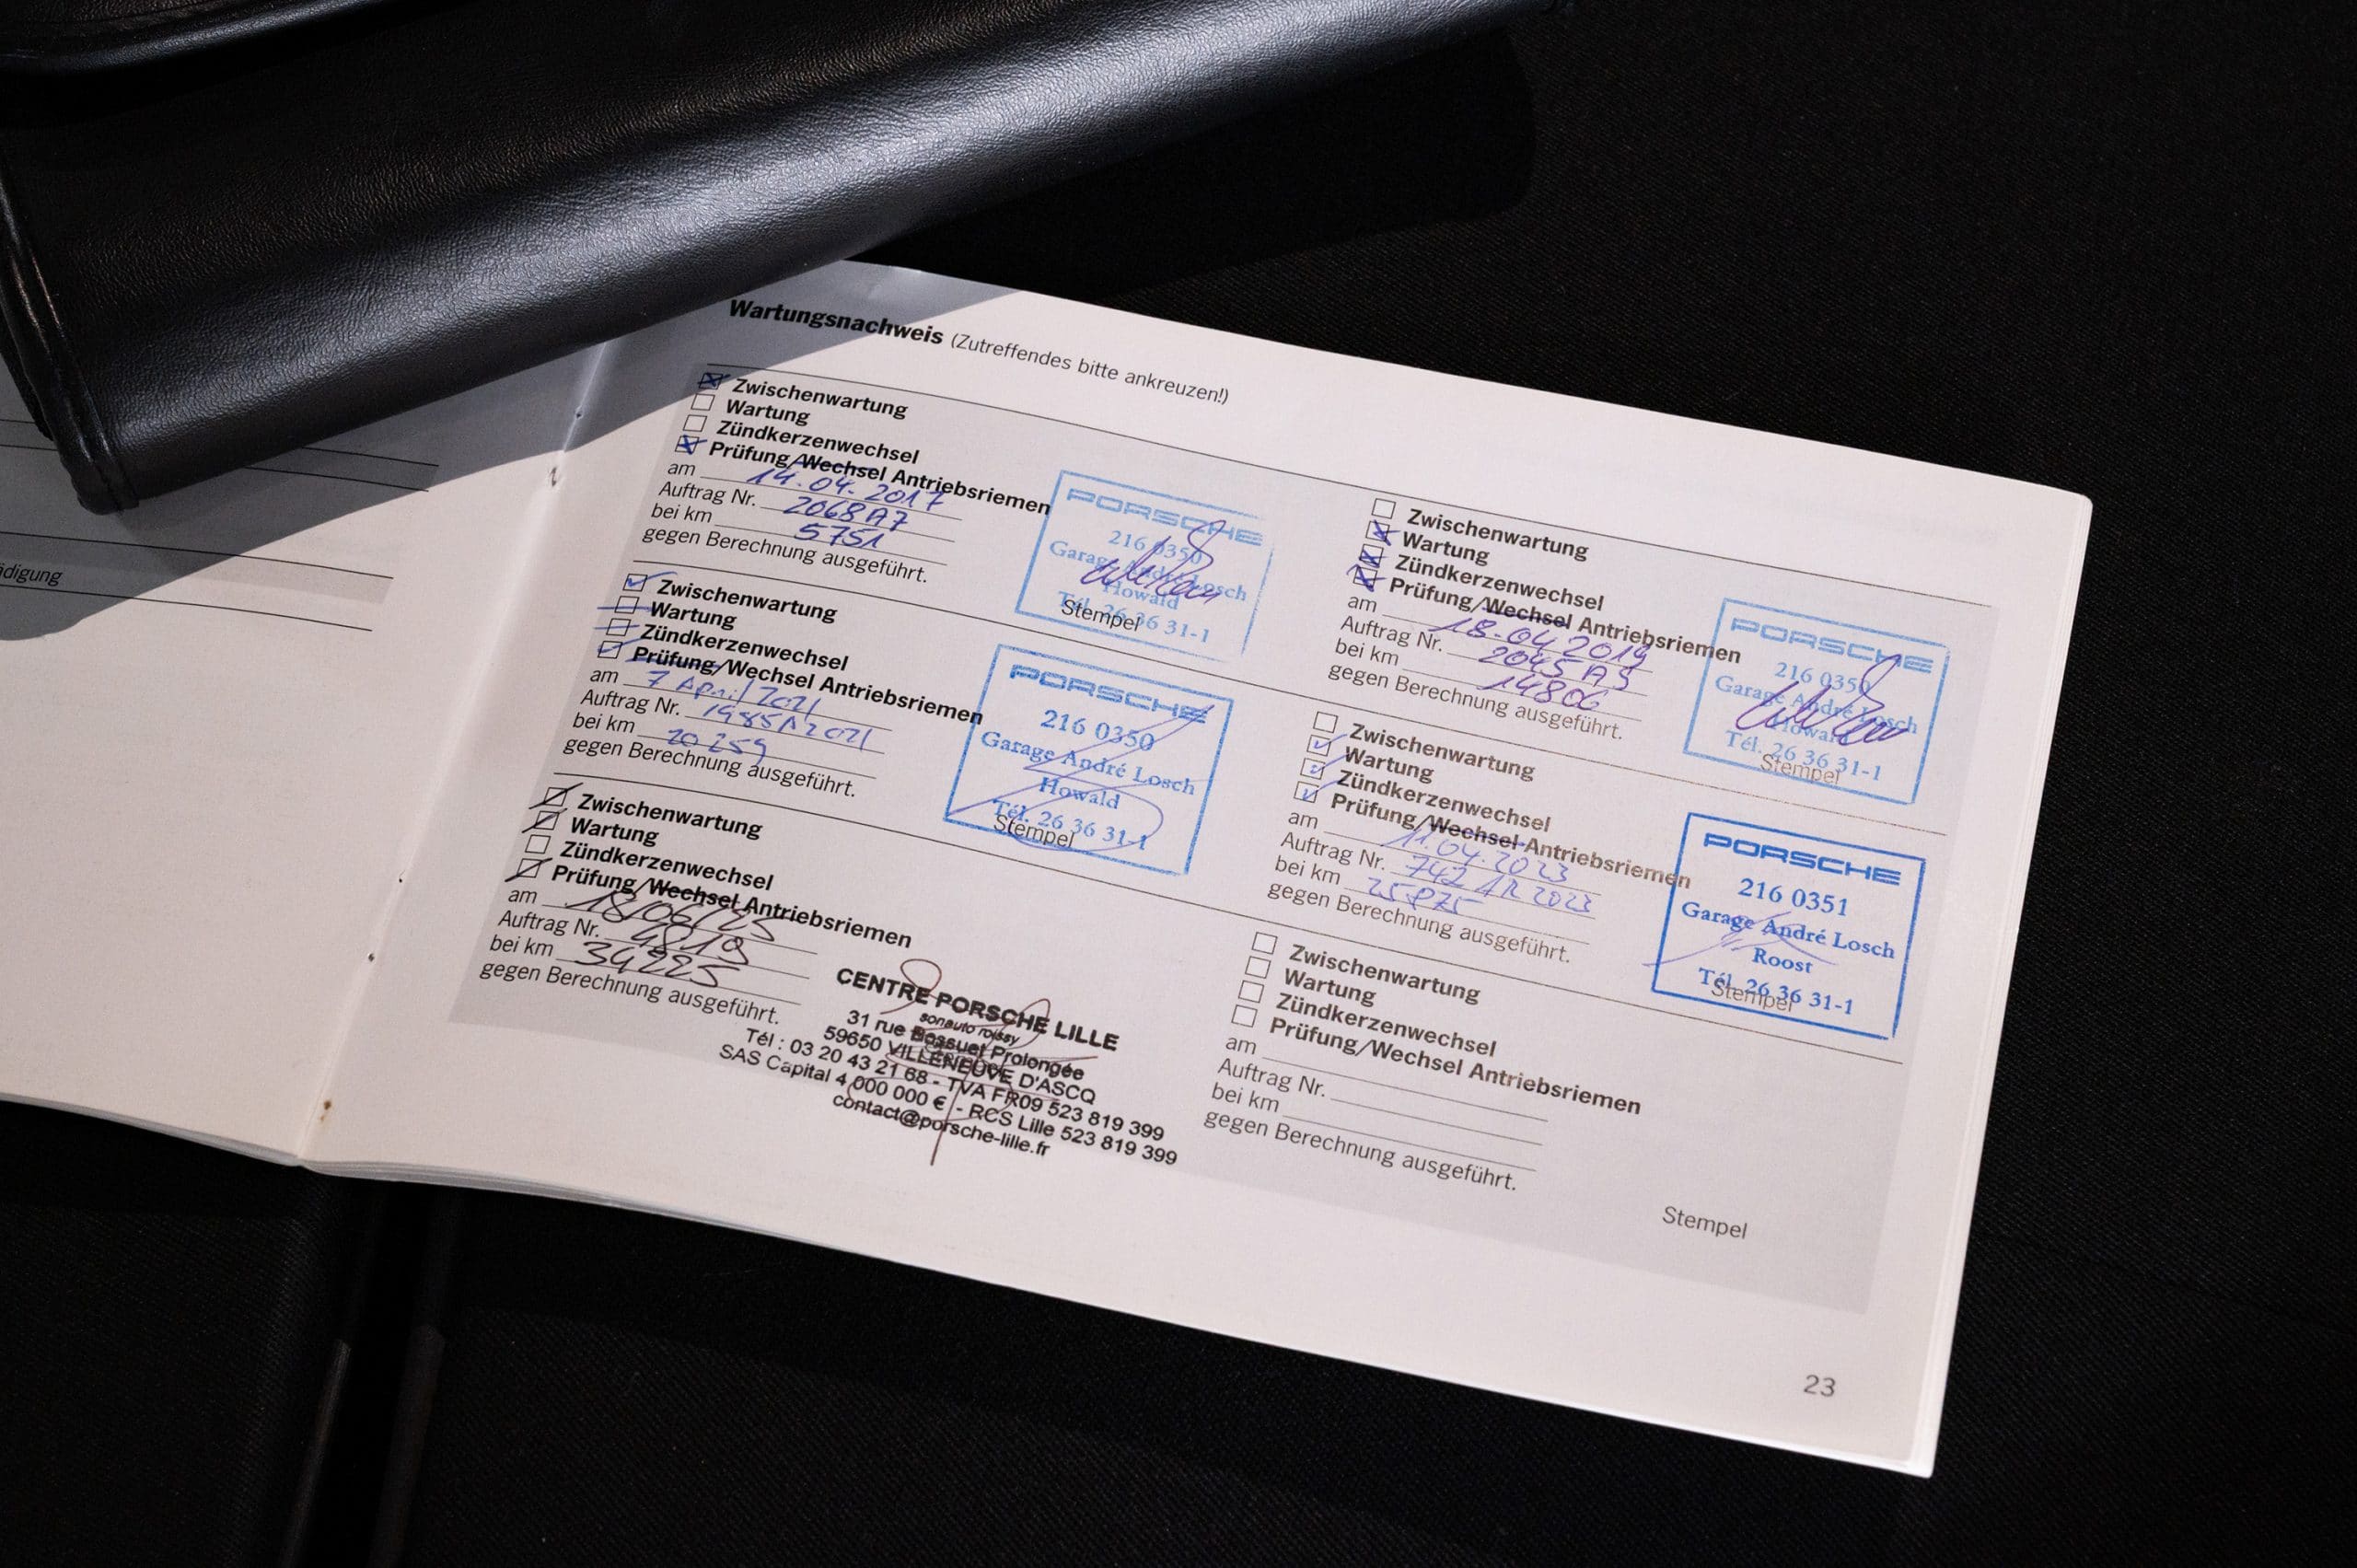 ädigung
Wartungsnachweis (Zutreffendes bitte ankreuzen!)
Zwischenwartung
Wartung
Zündkerzenwechsel
Prüfung/Wechsel Antriebsriemen
am 14.04.2017
Auftrag Nr. 2068A7
bei km 5751
gegen Berechnung ausgeführt.
PORSCHE
216 0350
Garage André Losch
Howald
Tél. 26 36 31-1
Stempel
Zwischenwartung
Wartung
Zündkerzenwechsel
Prüfung/Wechsel Antriebsriemen
am 18.04 2019
Auftrag Nr. 2045A9
bei km 14806
gegen Berechnung ausgeführt.
PORSCHE
216 0350
Garage André Losch
Howald
Tél. 26 36 31-1
Stempel
Zwischenwartung
Wartung
Zündkerzenwechsel
Prüfung/Wechsel Antriebsriemen
am 7 April 2021
Auftrag Nr. 1985A2021
bei km 20259
gegen Berechnung ausgeführt.
PORSCHE
216 0350
Garage André Losch
Howald
Tél. 26 36 31-1
Stempel
Zwischenwartung
Wartung
Zündkerzenwechsel
Prüfung/Wechsel Antriebsriemen
am 11.04.2023
Auftrag Nr.
bei km 25875
gegen Berechnung ausgeführt.
PORSCHE
216 0351
Garage André Losch
Roost
Tél. 26 36 31-1
Stempel
Zwischenwartung
Wartung
Zündkerzenwechsel
Prüfung/Wechsel Antriebsriemen
am 18/06/25
Auftrag Nr. 4819
bei km 34225
gegen Berechnung ausgeführt.
CENTRE PORSCHE LILLE
sonauto roissy
31 rue Bossuet Prolongée
59650 VILLENEUVE D'ASCQ
Tél : 03 20 43 21 68 - TVA FR09 523 819 399
SAS Capital 4 000 000 € - RCS Lille 523 819 399
contact@porsche-lille.fr
Zwischenwartung
Wartung
Zündkerzenwechsel
Prüfung/Wechsel Antriebsriemen
am
Auftrag Nr.
bei km
gegen Berechnung ausgeführt.
Stempel
23